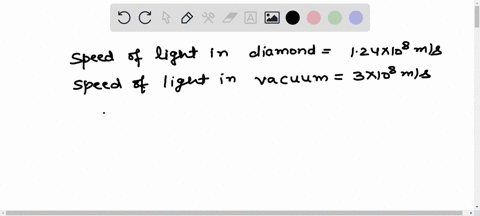 Speed of light in diamond = 1.24×10⁸ m/s
Speed of light in vacuum = 3×10⁸ m/s